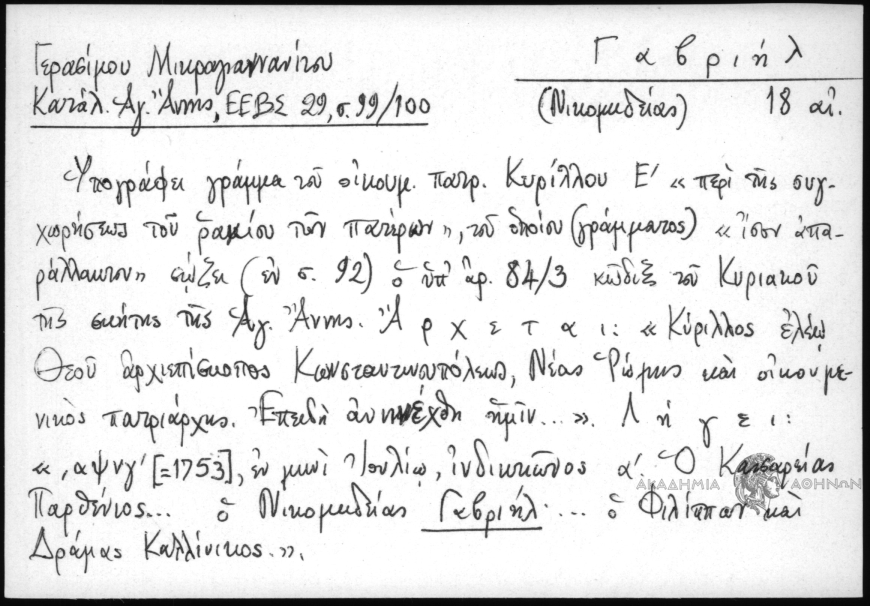 Γ α β ρ ι ή λ
Γερασίμου Μικραγιαννανίτου
Κατάλ. Ἁγ. Ἄννης, ΕΕΒΣ 29, σ. 99/100
(Νικομηδείας) 18 αἰ.
Ὑπογράφει γράμμα τοῦ οἰκουμ. πατρ. Κυρίλλου Ε' «περὶ τῆς συγ-
χωρήσεως τοῦ ῥακίου τῶν πατέρων», τοῦ ὁποίου (γράμματος) «ἴσον ἀπα-
ράλλακτον» σῴζει (ἐν σ. 92) ὁ ὑπ' ἀρ. 84/3 κῶδιξ τοῦ Κυριακοῦ
τῆς σκήτης τῆς Ἁγ. Ἄννης. Ἄ ρ χ ε τ α ι : «Κύριλλος ἐλέῳ
Θεοῦ ἀρχιεπίσκοπος Κωνσταντινουπόλεως, Νέας Ῥώμης καὶ οἰκουμε-
νικὸς πατριάρχης. Ἐπειδὴ ἀνηνέχθη ἡμῖν...». Λ ή γ ε ι :
«͵αψνγ' [=1753], ἐν μηνὶ Ἰουλίῳ, ἰνδικτιῶνος α'. Ὁ Καισαρείας
Παρθένιος... ὁ Νικομηδείας Γαβριήλ.... ὁ Φιλίππων καὶ
Δράμας Καλλίνικος.».
ΑΚΑΔΗΜΙΑ ΑΘΗΝΩΝ